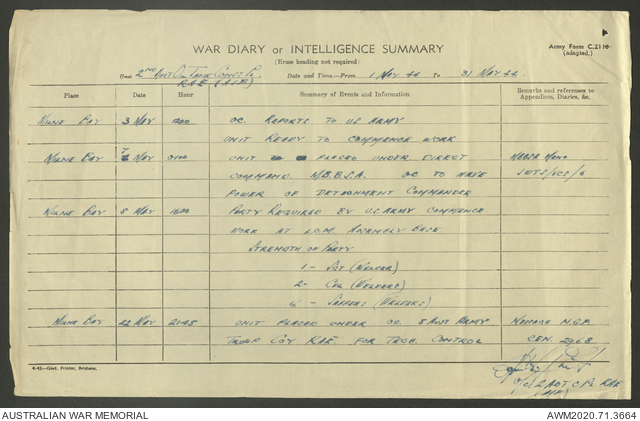 WAR DIARY or INTELLIGENCE SUMMARY
(Erase heading not required)
Army Form C.2118
(adapted.)
Unit 2nd Aust Oil Tank Const Pl
RAE (AIF)
Date and Time.—From 1 MAY 44 To 31 MAY 44.
Place Date Hour Summary of Events and Information Remarks and references to
Appendices, Diaries, &c.
MILNE BAY 3 MAY 1200 OC. REPORTS TO US ARMY
UNIT READY TO COMMENCE WORK
MILNE BAY 7 MAY 0100 UNIT PLACED UNDER DIRECT
COMMAND M.B.B.S.A. OC TO HAVE
POWER OF DETACHMENT COMMANDER
MBBSA MEMO
MILNE BAY 8 MAY 1600 PARTY REQUIRED BY U.S. ARMY COMMENCE
WORK AT ASSEMBLY BASE
STRENGTH OF PARTY
1 - SGT (WELDER)
2 - CPL (WELDERS)
- SAPPERS (WELDERS)
MILNE BAY 22 MAY 2145 UNIT PLACED UNDER OC. 5 AUST ARMY
TROOP COY RAE FOR TECH. CONTROL
N.G.F.
2968
4-43—Govt. Printer, Brisbane.
RAE
(AIF)
AUSTRALIAN WAR MEMORIAL
AWM2020.71.3664